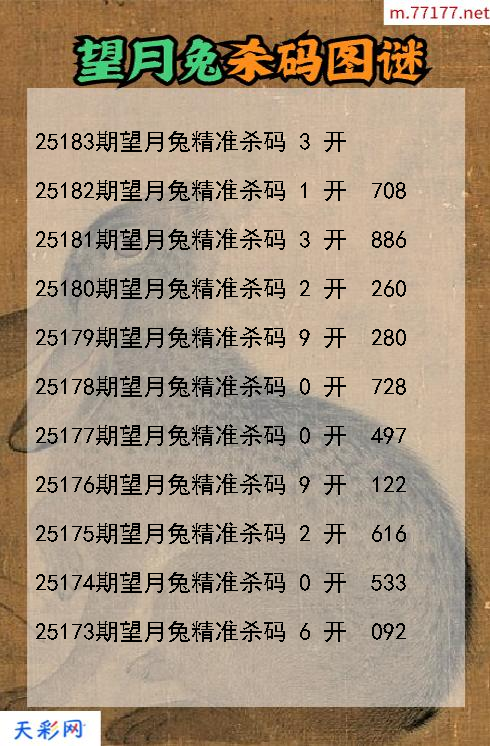 m.77177.net
望月兔杀码图谜
25183期望月兔精准杀码 3 开
25182期望月兔精准杀码 1 开 708
25181期望月兔精准杀码 3 开 886
25180期望月兔精准杀码 2 开 260
25179期望月兔精准杀码 9 开 280
25178期望月兔精准杀码 0 开 728
25177期望月兔精准杀码 0 开 497
25176期望月兔精准杀码 9 开 122
25175期望月兔精准杀码 2 开 616
25174期望月兔精准杀码 0 开 533
25173期望月兔精准杀码 6 开 092
天彩网